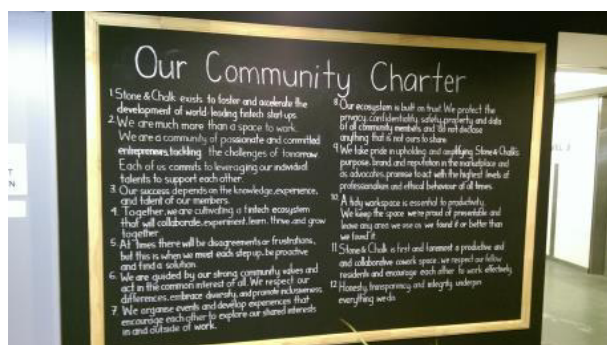 Our Community Charter
1 Stone & Chalk exists to foster and accelerate the
development of world-leading fintech start ups.
2. We are much more than a space to work.
We are a community of passionate and committed
entrepreneurs, tackling the challenges of tomorrow
Each of us commits to leveraging our individual
talents to support each other.
3. Our success depends on the knowledge, experience,
and talent of our members.
4. Together, we are cultivating a fintech ecosystem
that will collaborate, experiment, learn, thrive and grow
together
5. At times there will be disagreements or frustrations,
but this is when we must each step up, be proactive
and find a solution.
6. We are guided by our strong community values and
act in the common interest of all. We respect our
differences, embrace diversity, and promote inclusiveness
7. We organise events and develop experiences that
encourage each other to explore our shared interests
in and outside of work.
8 Our ecosystem is built on trust. We protect the
privacy, confidentiality, safety, property and data
of all community members and do not disclose
anything that is not ours to share.
9 We take pride in upholding and amplifying Stone & Chalk's
purpose, brand, and reputation in the marketplace and
as advocates, promise to act with the highest levels of
professionalism and ethical behaviour at all times.
10 A tidy workspace is essential to productivity.
We keep the space we're proud of presentable and
leave any area we use as we found it or better than
we found it.
11 Stone & Chalk is first and foremost a productive and
and collaborative cowork space. we respect our fellow
residents and encourage each other to work effectively
12 Honesty, transparency and integrity underpin
everything we do.